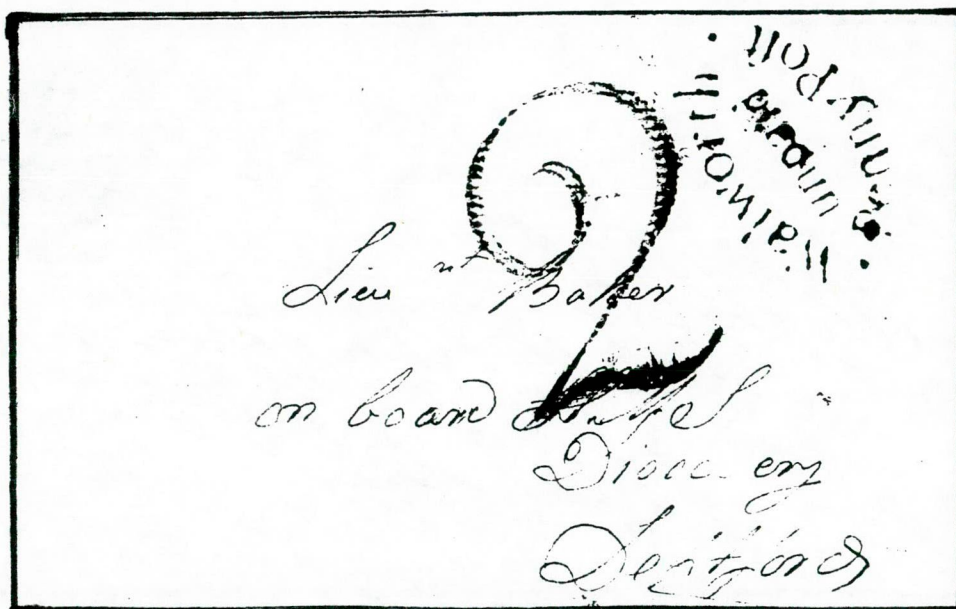 Walworth
unpaid
Penny Post
2
Lieu^nt Baker
on board
Discovery
Deptford